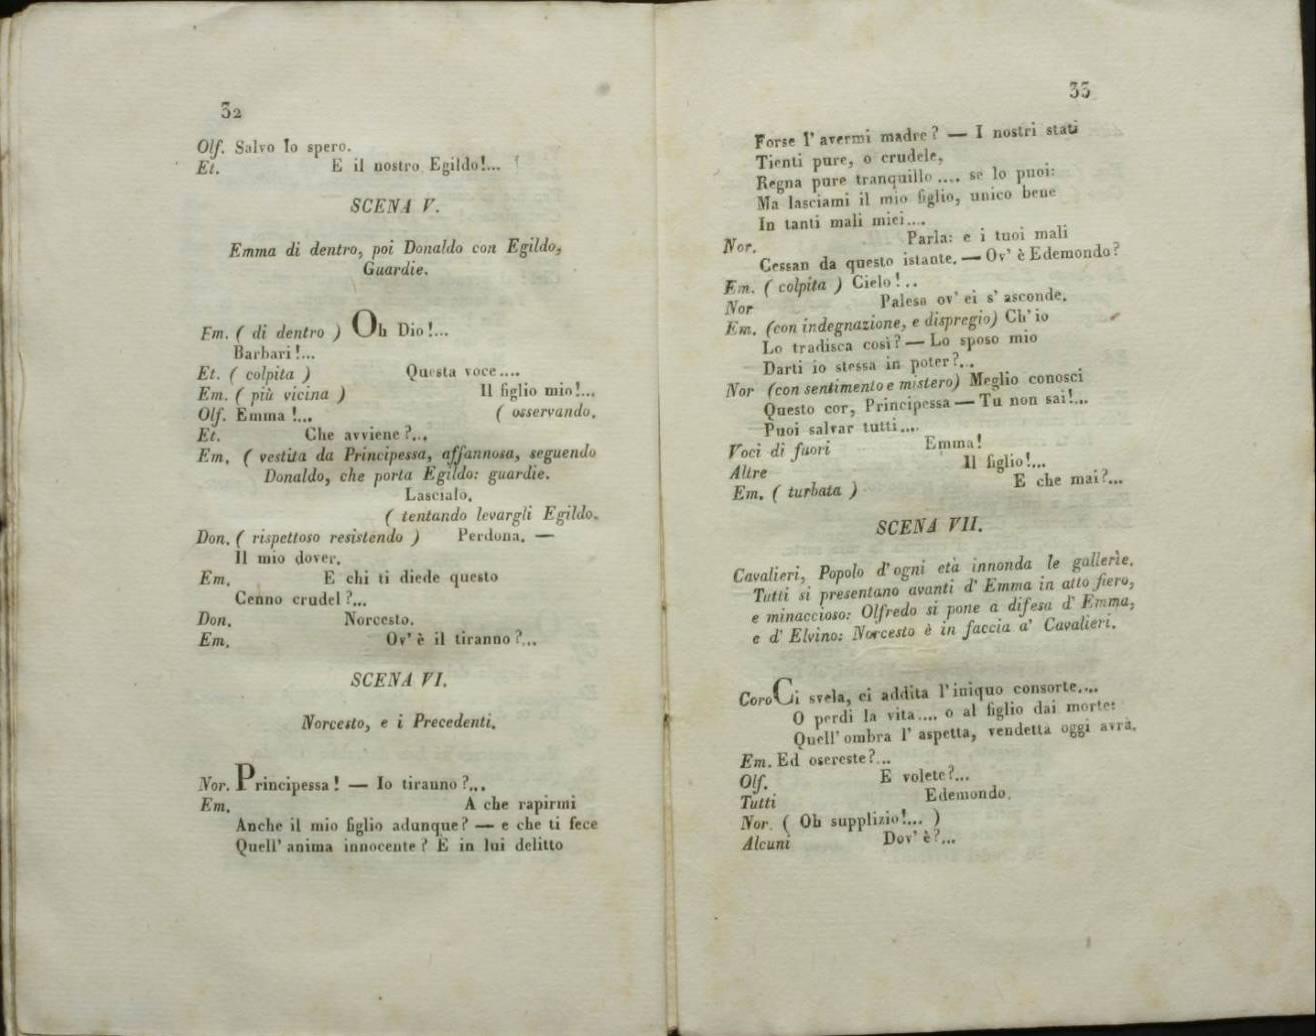 32
Olf. Salvo Io spero.
Et. E il nostro Egildo!...
SCENA V.
Emma di dentro, poi Donaldo con Egildo,
Guardie.
Em. ( di dentro ) Oh Dio!...
Barbari!...
Et. ( colpita ) Questa voce....
Em. ( più vicina ) Il figlio mio!...
Olf. Emma!... ( osservando.
Et. Che avviene?...
Em. ( vestita da Principessa, affannosa, seguendo
Donaldo, che porta Egildo: guardie.
Lascialo.
( tentando levargli Egildo.
Don. ( rispettoso resistendo ) Perdona. —
Il mio dover.
Em. E chi ti diede questo
Cenno crudel?...
Don. Norcesto.
Em. Ov' è il tiranno?...
SCENA VI.
Norcesto, e i Precedenti.
Nor. Principessa! — Io tiranno?...
Em. A che rapirmi
Anche il mio figlio adunque? — e che ti fece
Quell' anima innocente? E in lui delitto
33
Forse l' avermi madre? — I nostri stati
Tienti pure, o crudele,
Regna pure tranquillo.... se lo puoi:
Ma lasciami il mio figlio, unico bene
In tanti mali miei....
Nor. Parla: e i tuoi mali
Cessan da questo istante. — Ov' è Edemondo?
Em. ( colpita ) Cielo!..
Nor Palesa ov' ei s' asconde.
Em. (con indegnazione, e dispregio) Ch' io
Lo tradisca così? — Lo sposo mio
Darti io stessa in poter?...
Nor (con sentimento e mistero) Meglio conosci
Questo cor, Principessa — Tu non sai!...
Puoi salvar tutti....
Voci di fuori Emma!
Altre Il figlio!...
Em. ( turbata ) E che mai?...
SCENA VII.
Cavalieri, Popolo d' ogni età innonda le gallerie.
Tutti si presentano avanti d' Emma in atto fiero,
e minaccioso: Olfredo si pone a difesa d' Emma,
e d' Elvino: Norcesto è in faccia a' Cavalieri.
Coro Ci svela, ci addita l' iniquo consorte....
O perdi la vita.... o al figlio dai morte:
Quell' ombra l' aspetta, vendetta oggi avrà.
Em. Ed osereste?...
Olf. E volete?...
Tutti Edemondo.
Nor. ( Oh supplizio!... )
Alcuni Dov' è?...